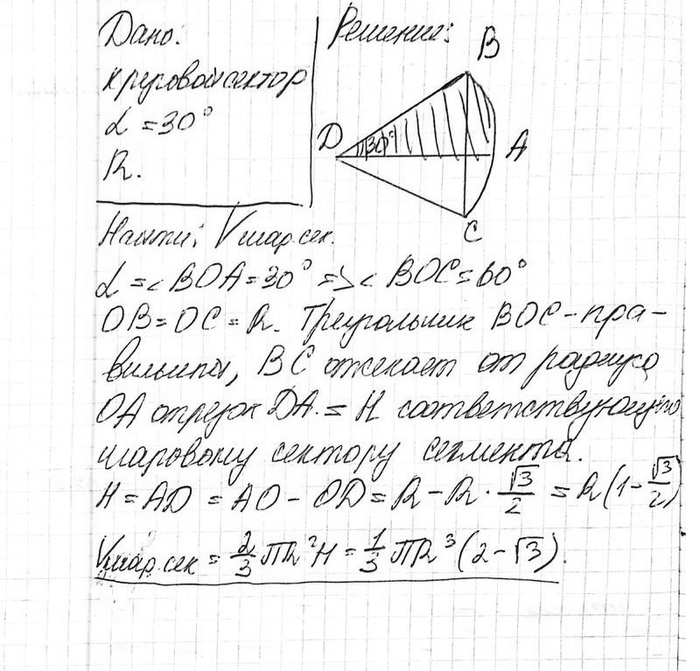 Дано:
круговой сектор
α = 30°
R.
Решение:
B
D
30°
A
C
Найти: Vшар.сек.
α = ∠BOA = 30° => ∠BOC = 60°
OB = OC = R. Треугольник BOC - пра-
вильный, BC отсекает от радиуса
OA отрезок DA = H соответствующего
шаровому сектору сегмента.
H = AD = AO - OD = R - R · √3/2 = R(1 - √3/2)
Vшар.сек = 2/3 πR²H = 1/3 πR³(2 - √3).